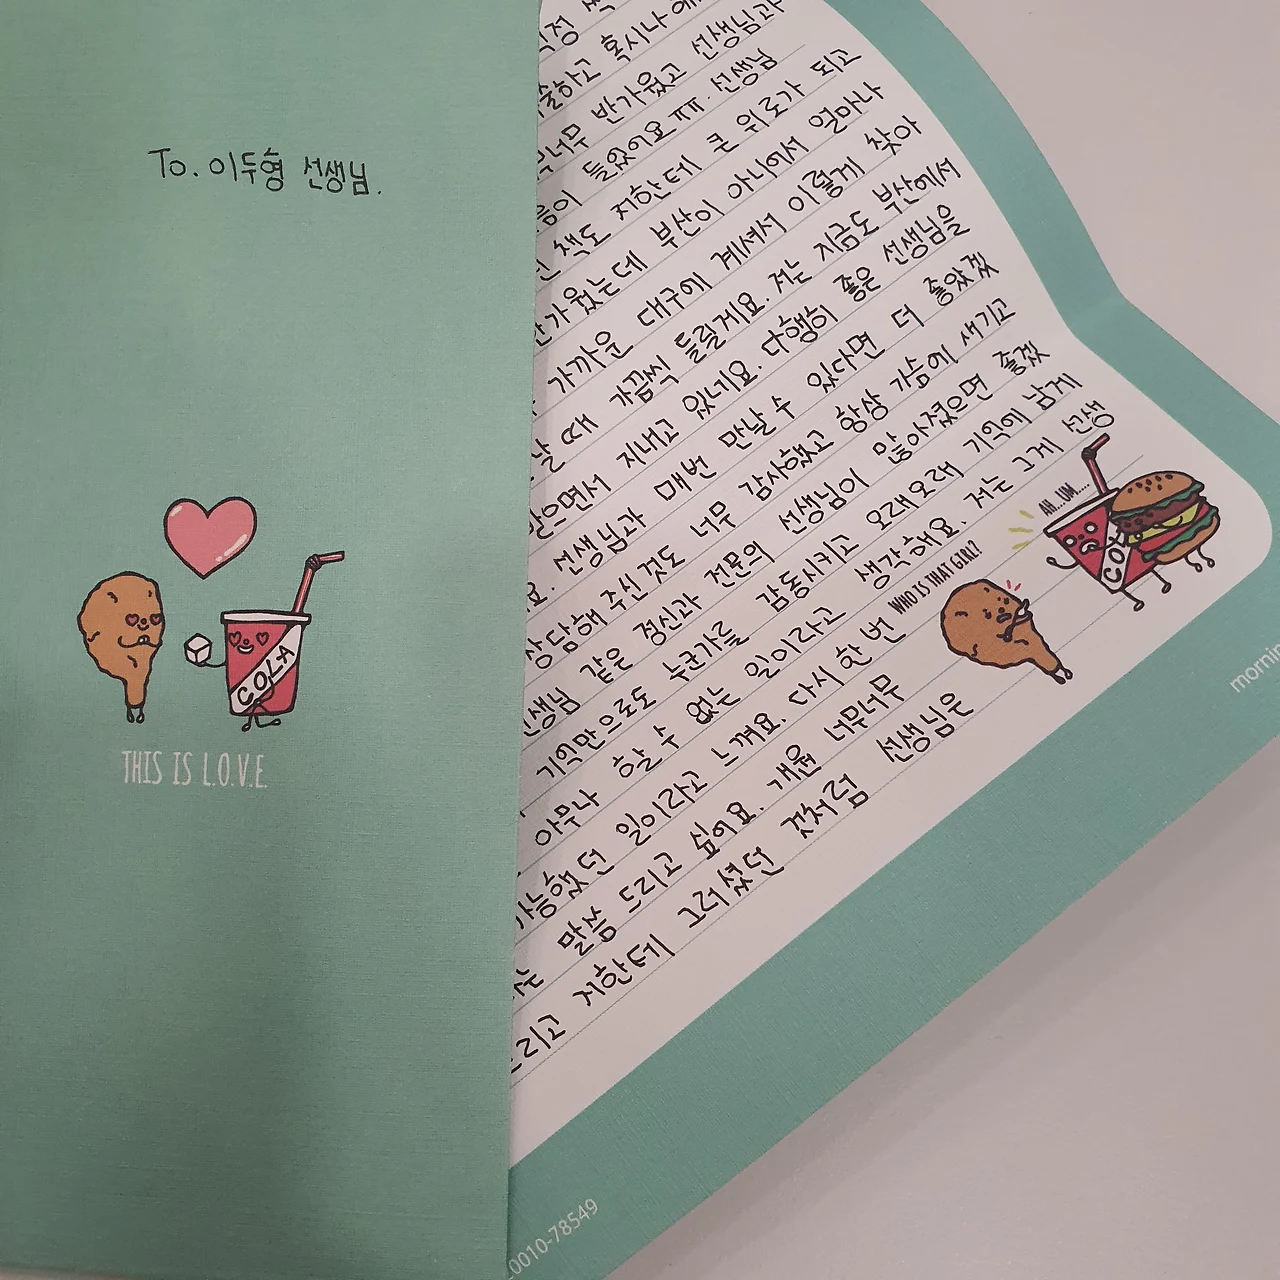 To. 이두형 선생님.
COLA
THIS IS L.O.V.E.
하고 혹시나
너무 반가웠고 선생님과
들었어요ㅠㅠ. 선생님
책도 저한테 큰 위로가 되고
부산이 아니어서 얼마나
가까운 대구에 계셔서 이렇게 찾아
때 가끔씩 들릴게요. 저는 지금도 부산에서
지내고 있네요. 다행히 좋은 선생님을
선생님과 매번 만날 수 있다면 더 좋았겠
상담해 주신 것도 너무 감사했고 항상 가슴에 새기고
같은 정신과 전문의 선생님이 많아졌으면 좋겠
기억만으로도 누군가를 감동시키고 오래오래 기억에 남게
아무나 할 수 없는 일이라고 생각해요. 저는 그게 선생
가능했던 일이라고 느껴요. 다시 한 번
말씀 드리고 싶어요. 개원 너무너무
저한테 그러셨던 것처럼 선생님은
WHO IS THAT GIRL?
AH...UM.....
CO
0010-78549